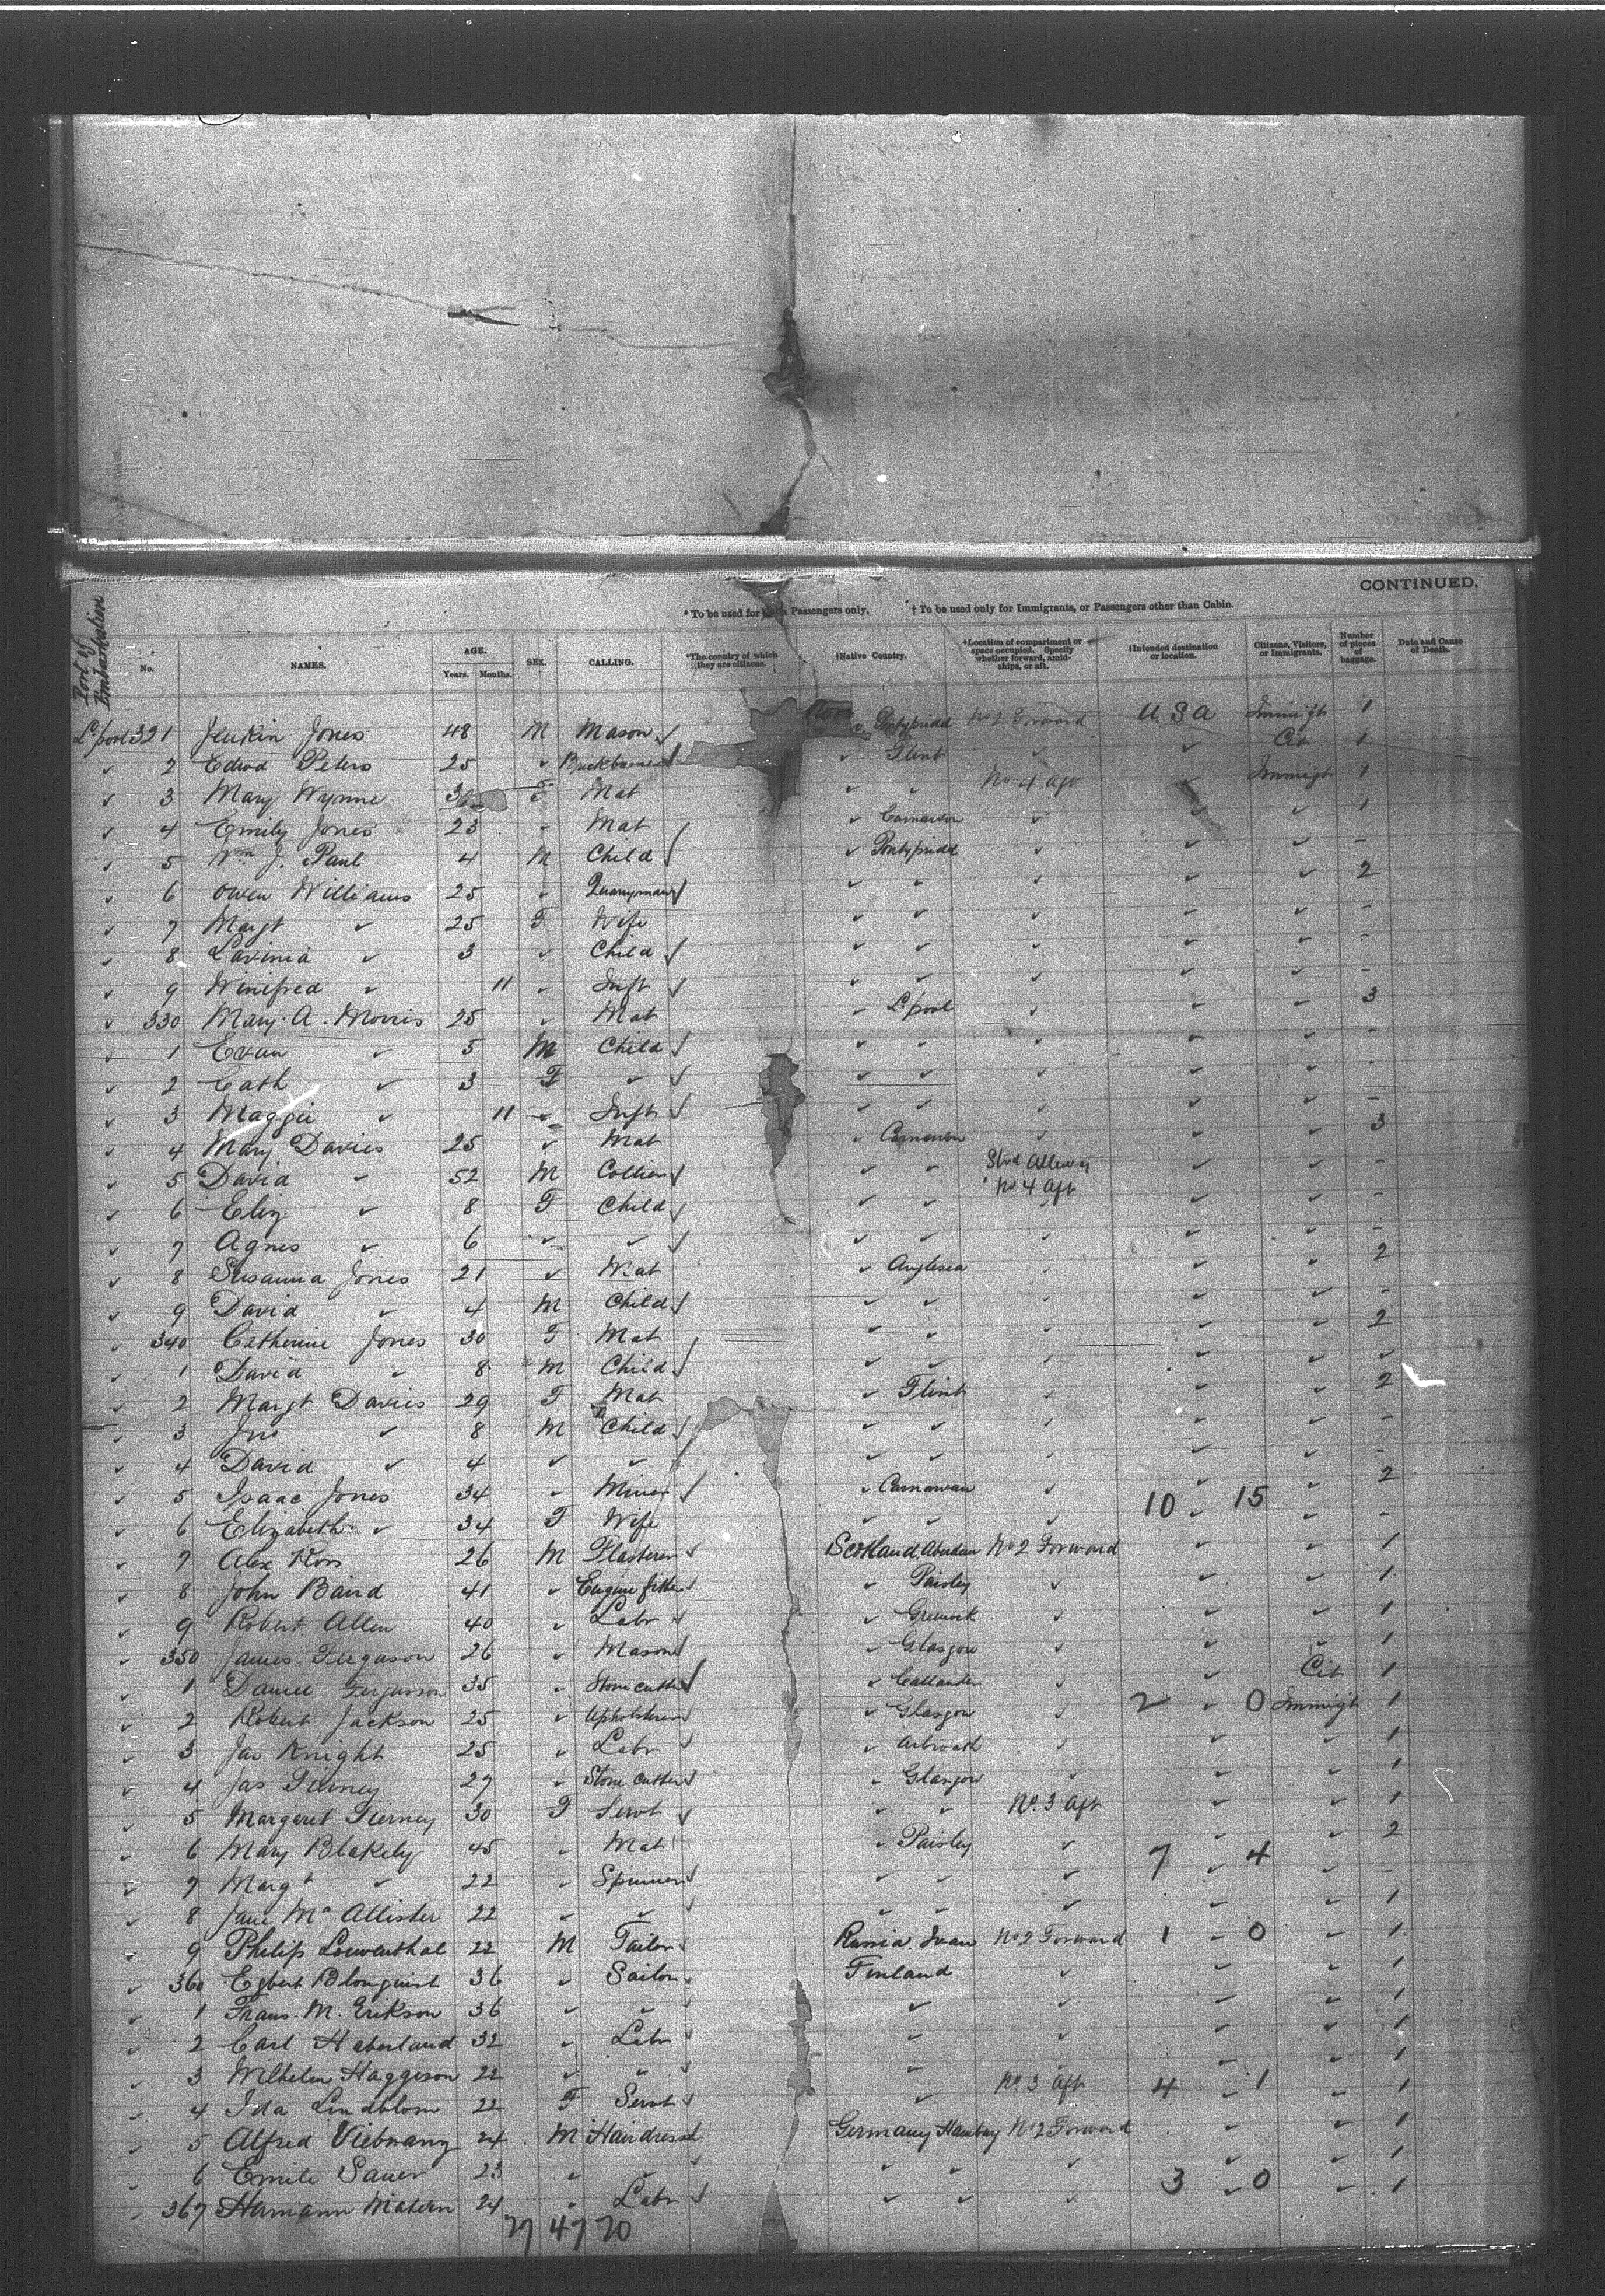 CONTINUED.
*To be used for Passengers only. † To be used only for Immigrants, or Passengers other than Cabin.
Port of Embarkation No. NAMES. AGE. Years. Months. SEX. CALLING. *The country of which they are citizens. †Native Country. †Location of compartment or space occupied. Specify whether forward, amidships, or aft. †Intended destination or location. Citizens, Visitors, or Immigrants. Number of pieces of baggage. Date and Cause of Death.
L'pool 321 Jenkin Jones 48 M Mason ✓ Pontypridd No 2 Forward U.S.A Immigt 1
✓ 2 Edwd Peters 25 ✓ ✓ Flint ✓ ✓ Cit 1
✓ 3 Mary Wynne 36 F Mat ✓ ✓ No 4 Aft ✓ Immigt 1
✓ 4 Emily Jones 23 ✓ Mat ✓ Carnarvon ✓ ✓ ✓ 1
✓ 5 Wm J. Paul 4 M Child ✓ ✓ Pontypridd ✓ ✓ ✓ -
✓ 6 Owen Williams 25 ✓ Quarryman ✓ ✓ ✓ ✓ ✓ ✓ 2
✓ 7 Margt ✓ 25 F Wife ✓ ✓ ✓ ✓ ✓ -
✓ 8 Lavinia ✓ 3 ✓ Child ✓ ✓ ✓ ✓ ✓ ✓ -
✓ 9 Winifred ✓ 11 ✓ Inft ✓ ✓ ✓ ✓ ✓ ✓ -
✓ 330 Mary A. Morris 25 ✓ Mat ✓ L'pool ✓ ✓ ✓ 3
✓ 1 Evan ✓ 5 M Child ✓ ✓ ✓ ✓ ✓ ✓ -
✓ 2 Cath ✓ 3 F ✓ ✓ ✓ ✓ ✓ ✓ ✓ -
✓ 3 Maggie ✓ 11 ✓ Inft ✓ ✓ ✓ ✓ ✓ ✓ -
✓ 4 Mary Davies 25 ✓ Mat ✓ Carnarvon ✓ ✓ ✓ 3
✓ 5 David ✓ 52 M Collier ✓ ✓ ✓ Stbd Alleway ✓ ✓ -
✓ 6 Eliz ✓ 8 F Child ✓ ✓ ✓ No 4 Aft ✓ ✓ -
✓ 7 Agnes ✓ 6 ✓ ✓ ✓ ✓ ✓ ✓ ✓ ✓ -
✓ 8 Susanna Jones 21 ✓ Mat ✓ Anglesea ✓ ✓ ✓ 2
✓ 9 David ✓ 4 M Child ✓ ✓ ✓ ✓ ✓ ✓ -
✓ 340 Catherine Jones 30 F Mat ✓ ✓ ✓ ✓ ✓ 2
✓ 1 David ✓ 8 M Child ✓ ✓ ✓ ✓ ✓ ✓ ✓
✓ 2 Margt Davies 29 F Mat ✓ Flint ✓ ✓ ✓ 2
✓ 3 Jno ✓ 8 M Child ✓ ✓ ✓ ✓ ✓ ✓ -
✓ 4 David ✓ 4 ✓ ✓ ✓ ✓ ✓ ✓ ✓ ✓ -
✓ 5 Isaac Jones 34 ✓ Miner ✓ ✓ Carnarvon ✓ ✓ ✓ 2
✓ 6 Elizabeth ✓ 34 F Wife ✓ ✓ ✓ 10 ✓ 15 ✓ -
✓ 7 Alex Ross 26 M Plasterer ✓ Scotland Aberdeen No 2 Forward ✓ ✓ 1
✓ 8 John Baird 41 ✓ Engine fitter ✓ ✓ Paisley ✓ ✓ ✓ 1
✓ 9 Robert Allen 40 ✓ Labr ✓ ✓ Greenock ✓ ✓ ✓ 1
✓ 350 James Ferguson 26 ✓ Mason ✓ ✓ Glasgow ✓ ✓ ✓ 1
✓ 1 Daniel Fergusson 35 ✓ Stone cutter ✓ ✓ Callander ✓ ✓ Cit 1
✓ 2 Robert Jackson 25 ✓ Upholsterer ✓ ✓ Glasgow ✓ 2 ✓ 0 Immigt 1
✓ 3 Jas Knight 25 ✓ Labr ✓ ✓ Arbroath ✓ ✓ ✓ 1
✓ 4 Jas Tierney 27 ✓ Stone cutter ✓ ✓ Glasgow ✓ ✓ ✓ 1
✓ 5 Margaret Tierney 30 F Servt ✓ ✓ ✓ No. 3 Aft ✓ ✓ 1
✓ 6 Mary Blakely 45 ✓ Mat ✓ Paisley ✓ ✓ ✓ 2
✓ 7 Margt ✓ 22 ✓ Spinner ✓ ✓ ✓ ✓ 7 ✓ 4 ✓ -
✓ 8 Jane McAllister 22 ✓ ✓ ✓ ✓ ✓ ✓ ✓ ✓ 1
✓ 9 Philip Lowenthal 22 M Tailor ✓ Russia No 2 Forward 1 ✓ 0 ✓ 1
✓ 360 Egbert Blomquist 36 ✓ Sailor ✓ Finland ✓ ✓ ✓ 1
✓ 1 Frans. M. Erikson 36 ✓ ✓ ✓ ✓ ✓ ✓ ✓ 1
✓ 2 Carl Haberland 32 ✓ Labr ✓ ✓ ✓ ✓ ✓ 1
✓ 3 Wilhelm Haggeson 22 ✓ ✓ ✓ ✓ ✓ ✓ ✓ 1
✓ 4 Ida Lindblom 22 F Servt ✓ ✓ No. 3 Aft 4 ✓ 1 ✓ 1
✓ 5 Alfred 24 M Hairdresser Germany Hamburg No 2 Forward ✓ ✓ 1
✓ 6 Emile Sauer 23 ✓ ✓ ✓ ✓ ✓ ✓ ✓ ✓ 1
✓ 367 Hamann Matern 24 ✓ Labr ✓ ✓ ✓ ✓ 3 ✓ 0 ✓ 1
27 47 20